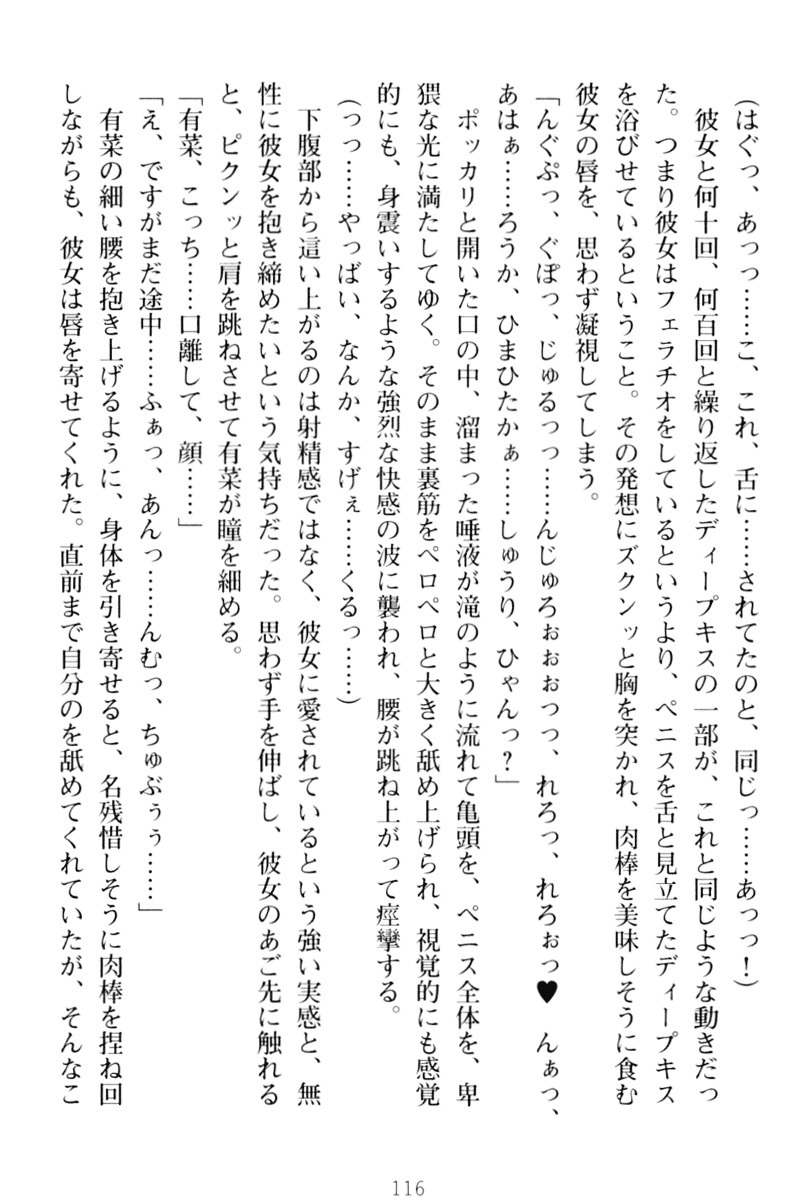 (はぐっ、あっっ……こ、これ、舌に……されてたのと、同じっ……あっっ！)
　彼女と何十回、何百回と繰り返したディープキスの一部が、これと同じような動きだっ
た。つまり彼女はフェラチオをしているというより、ペニスを舌と見立てたディープキス
を浴びせているということ。その発想にズクンッと胸を突かれ、肉棒を美味しそうに食む
彼女の唇を、思わず凝視してしまう。
「んぐぷっ、ぐぽっ、じゅるっっ……んじゅろぉぉぉっっ、れろっ、れろぉっ♥　んぁっ、
あはぁ……ろうか、ひまひたかぁ……しゅうり、ひゃんっ？」
　ポッカリと開いた口の中、溜まった唾液が滝のように流れて亀頭を、ペニス全体を、卑
猥な光に満たしてゆく。そのまま裏筋をペロペロと大きく舐め上げられ、視覚的にも感覚
的にも、身震いするような強烈な快感の波に襲われ、腰が跳ね上がって痙攣する。
(っっ……やっばい、なんか、すげぇ……くるっ……)
　下腹部から這い上がるのは射精感ではなく、彼女に愛されているという強い実感と、無
性に彼女を抱き締めたいという気持ちだった。思わず手を伸ばし、彼女のあご先に触れる
と、ピクンッと肩を跳ねさせて有菜が瞳を細める。
「有菜、こっち……口離して、顔……」
「え、ですがまだ途中……ふぁっ、あんっ……んむっ、ちゅぶぅぅ……」
　有菜の細い腰を抱き上げるように、身体を引き寄せると、名残惜しそうに肉棒を捏ね回
しながらも、彼女は唇を寄せてくれた。直前まで自分のを舐めてくれていたが、そんなこ
116